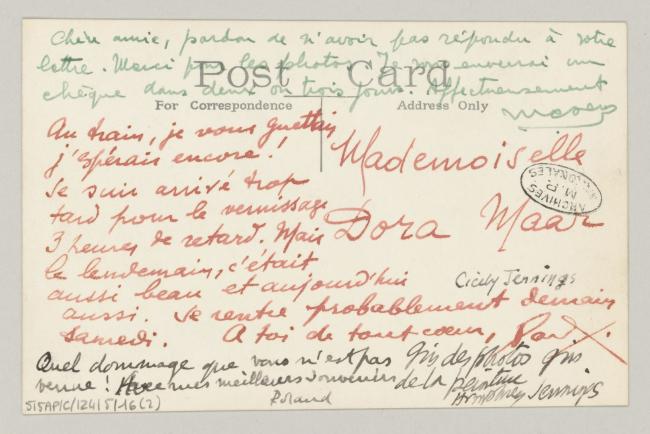 Chère amie, pardon de n'avoir pas répondu à votre
lettre. Merci pour les photos. Je vous enverrai un
chèque dans deux ou trois jours. Affectueusement
Post Card
For Correspondence
Address Only
Au train, je vous guettais
j'espérais encore!
Je suis arrivé trop
tard pour le vernissage
3 heures de retard. Mais
le lendemain, c'était
aussi beau et aujourd'hui
aussi. Je rentre probablement demain
samedi. A toi de tout cœur, Paul.
Mademoiselle
Dora Maar
ARCHIVES NATIONALES
M.P.
Cicily Jennings
Quel dommage que vous n'est pas
venue! mes meilleurs souvenirs
Roland
Gris des photos gris
de la peinture
Humphrey Jennings
515AP/C/124/5/16(2)